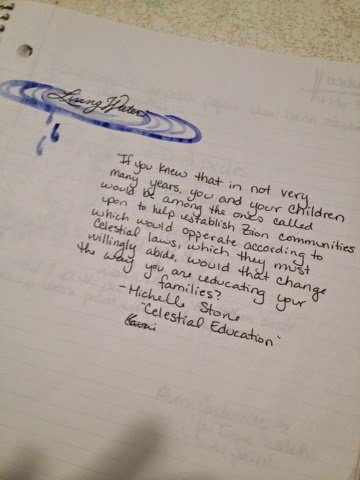 Living Waters
"If you knew that in not very
many years, you and your children
would be among the ones called
upon to help establish Zion communities
which would opperate according to
Celestial laws, which they must
willingly abide, would that change
the way you are educating your
families?
- Michelle Stone
"Celestial Education"